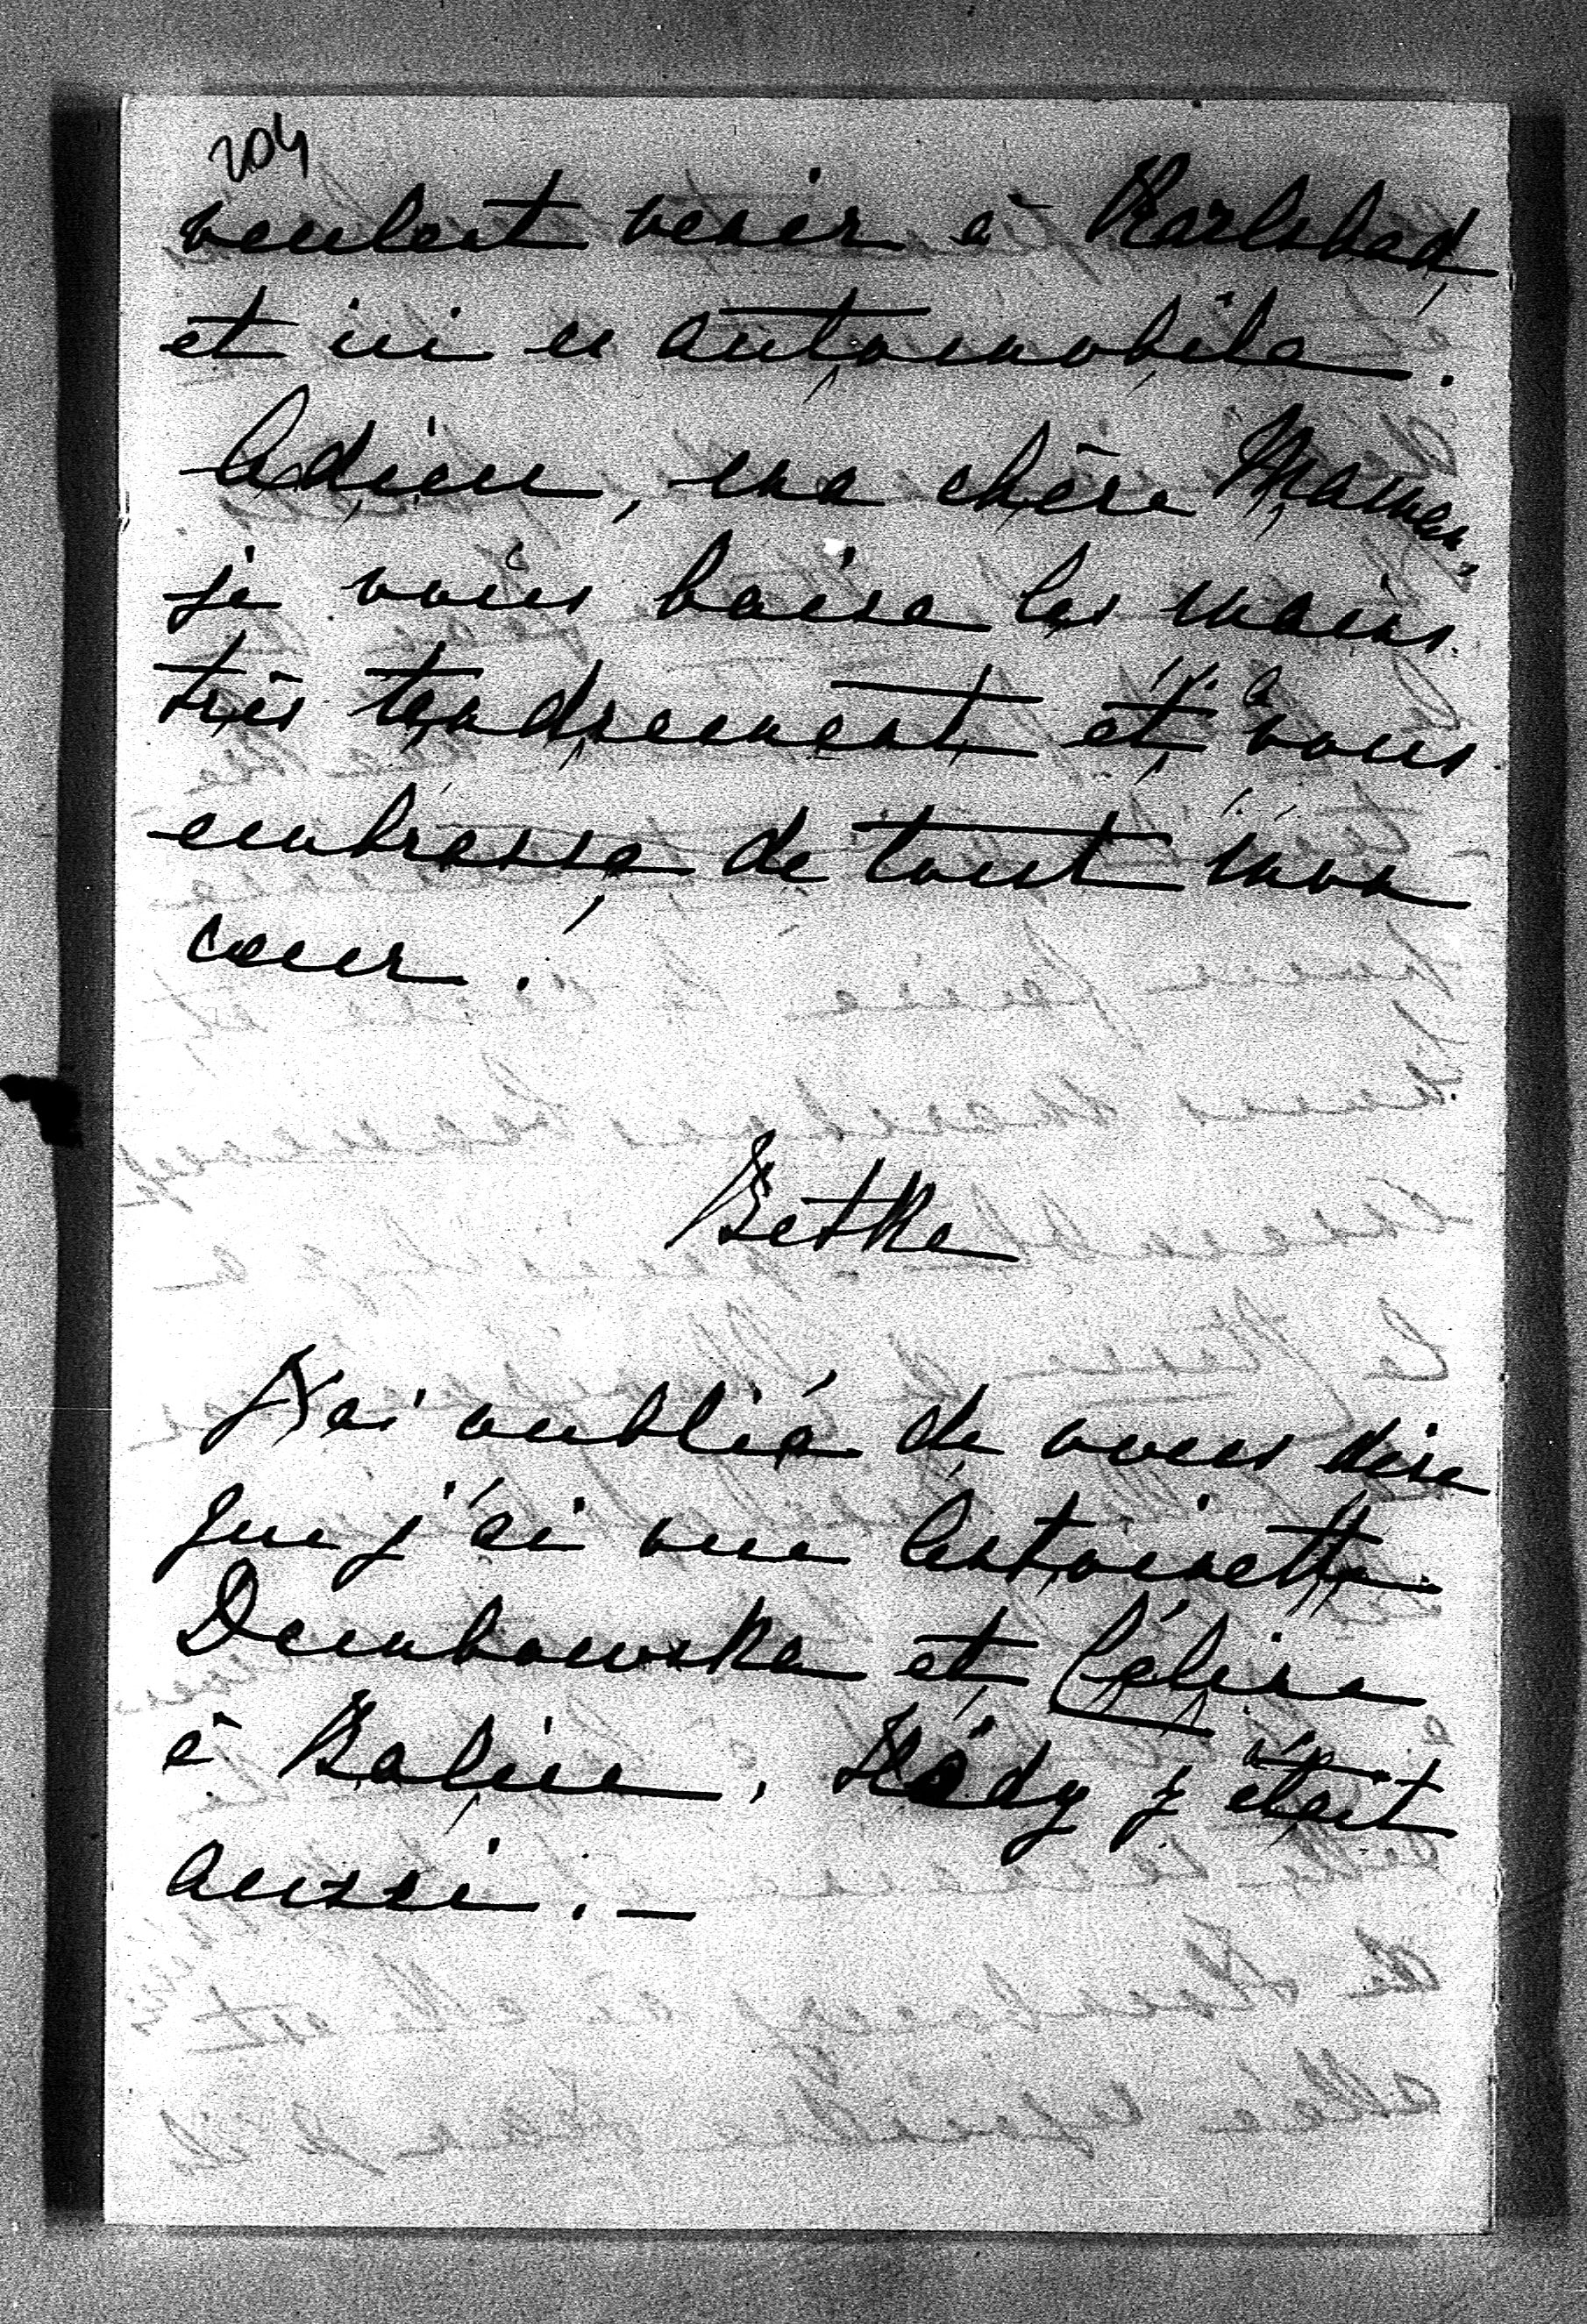 204
veulent venir à Karlsbad
et ici en automobile.
Adieu, ma chère Maman,
je vous baise les mains
très tendrement et vous
embrasse de tout mon
cœur.
Betka
J'ai oublié de vous dire
que j'ai vue Antoinette
Dembowska et Céline
à Balice. Kôdy y était
aussi. —